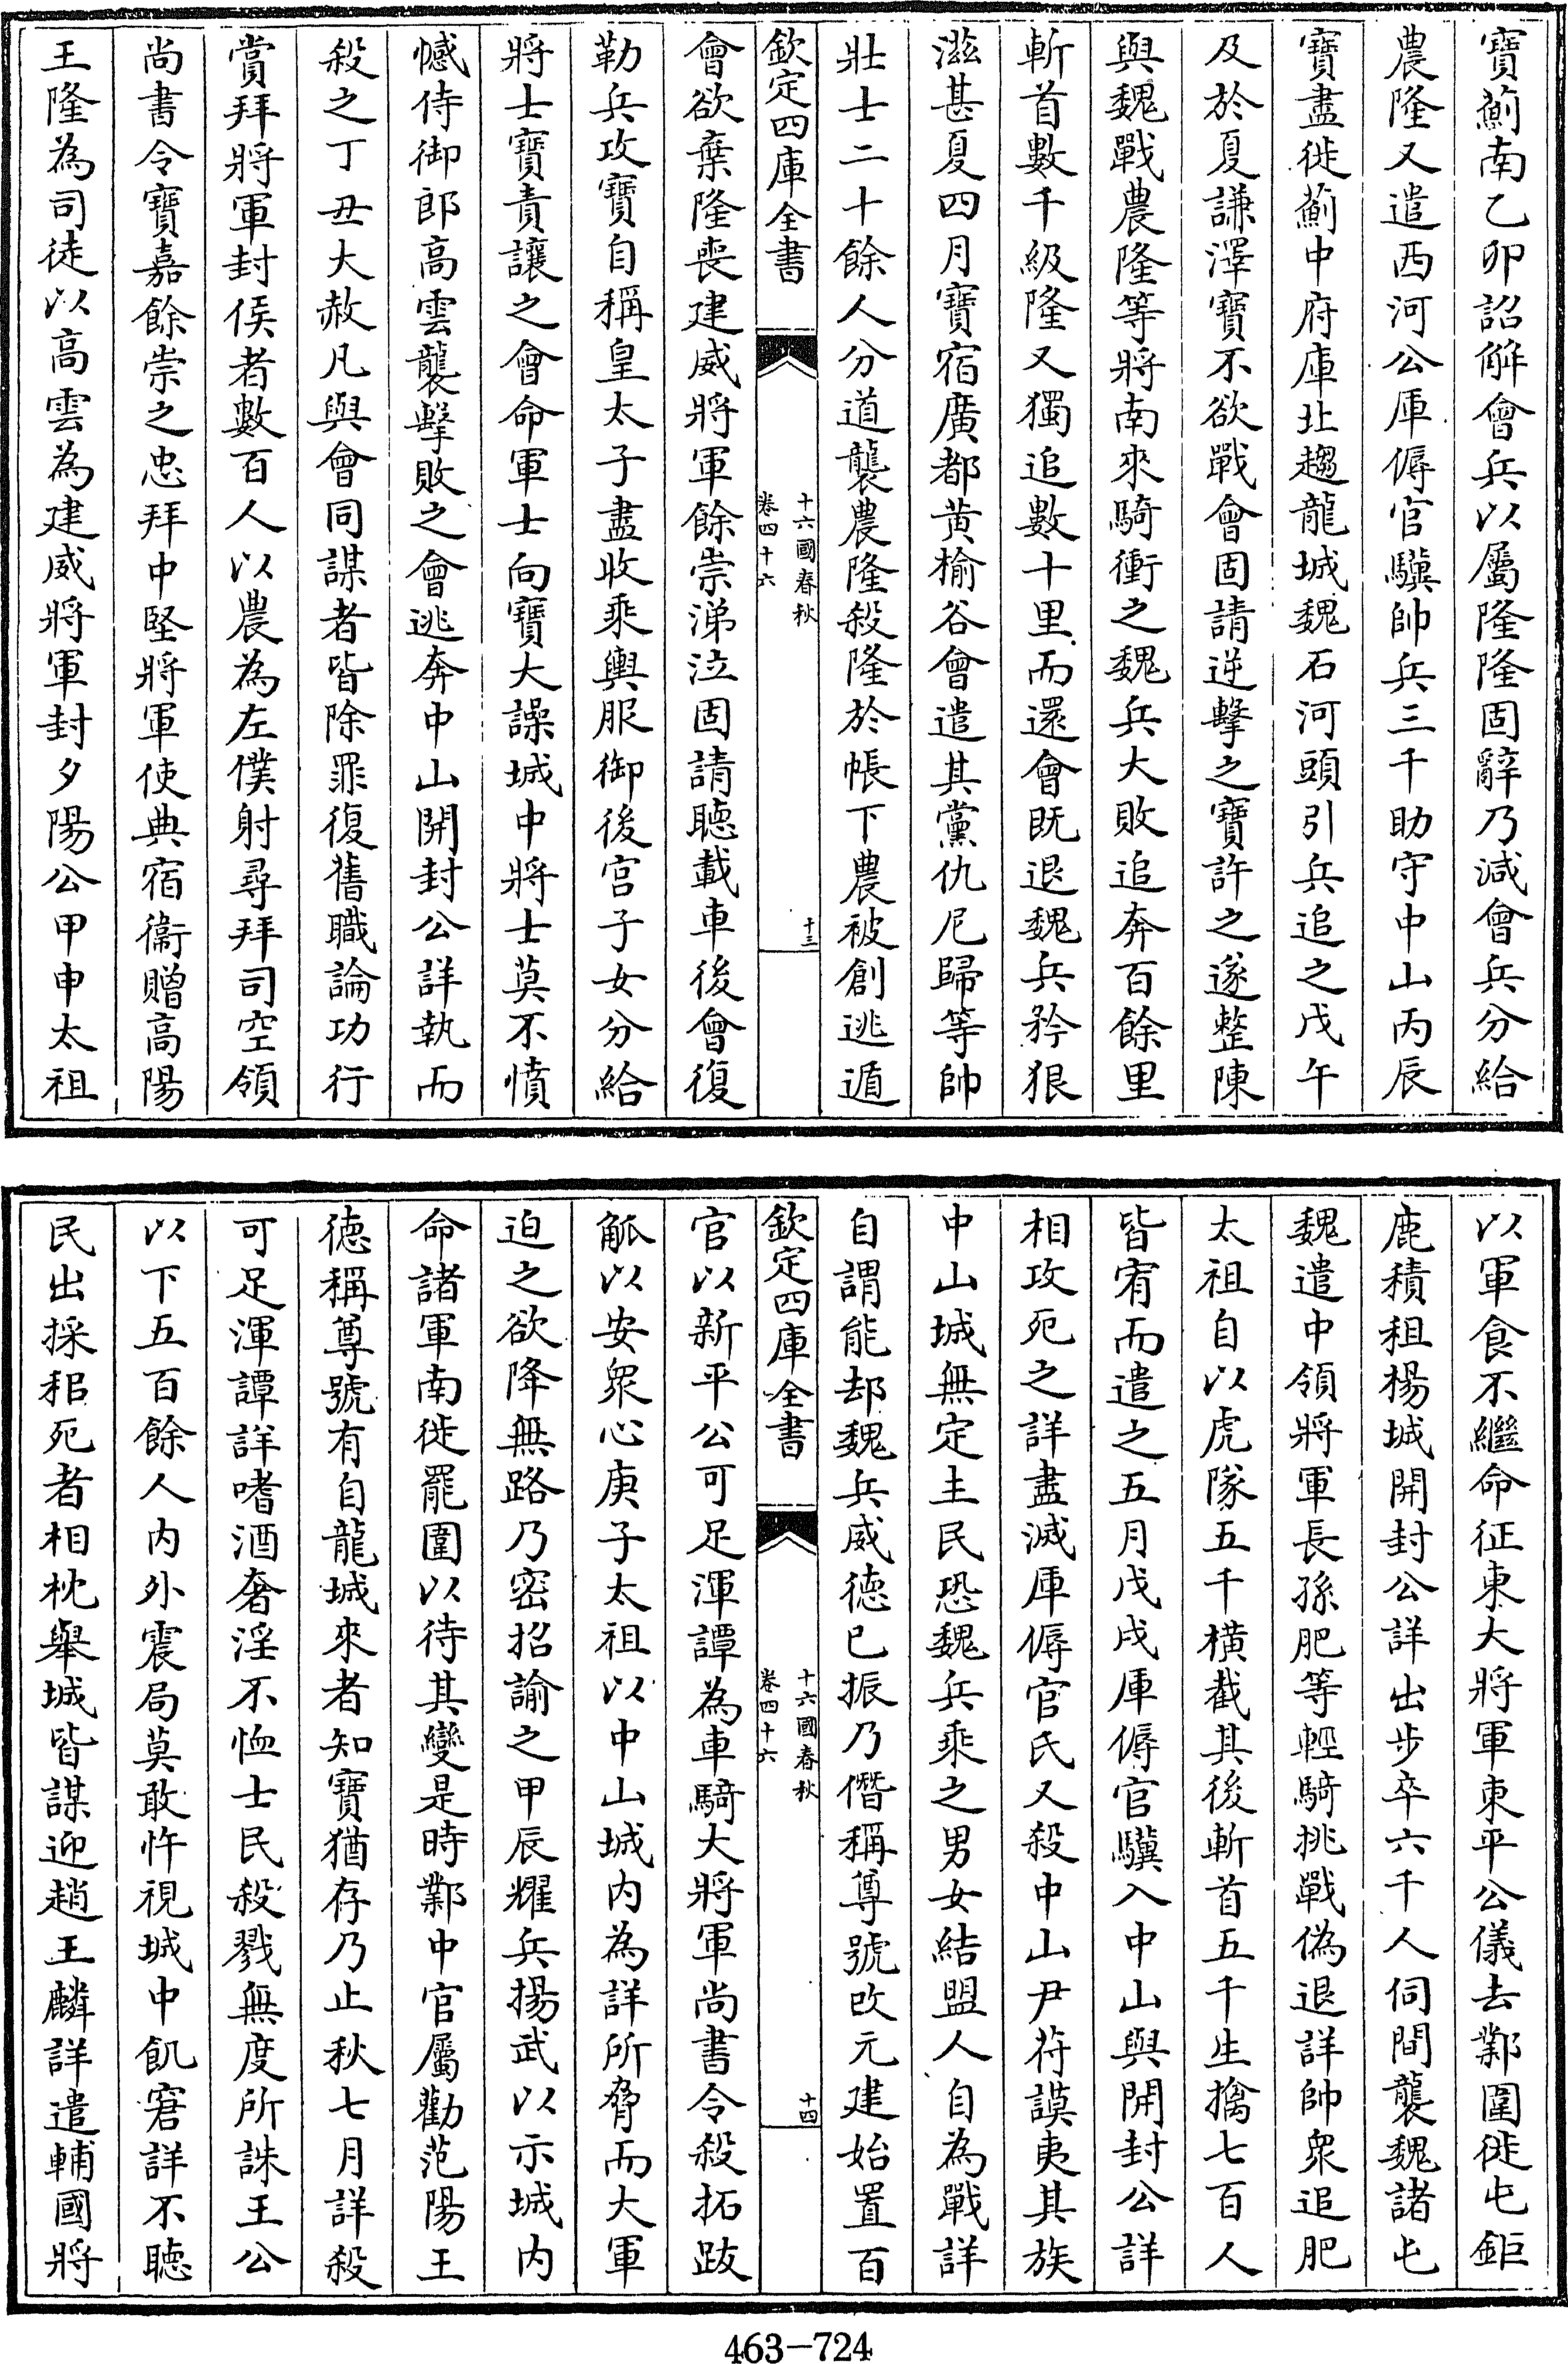 寶薊南乙卯詔解會兵以屬隆隆固辭乃減會兵分給
農隆又遣西河公庫傉官驥帥兵三千助守中山丙辰
寶盡徙薊中府庫北趨龍城魏石河頭引兵追之戊午
及於夏謙澤寶不欲戰會固請逆擊之寶許之遂整陳
與魏戰農隆等將南來騎衝之魏兵大敗追奔百餘里
斬首數千級隆又獨追數十里而還會既退魏兵矜狠
滋甚夏四月寶宿廣都黄榆谷會遣其黨仇尼歸等帥
壯士二十餘人分道襲農隆殺隆於帳下農被創逃遁
欽定四庫全書
十六國春秋
卷四十六
十三
會欲棄隆喪建威將軍餘崇涕泣固請聽載車後會復
勒兵攻寶自稱皇太子盡收乘輿服御後宫子女分給
將士寶責讓之會命軍士向寶大譟城中將士莫不憤
憾侍御郎高雲襲擊敗之會逃奔中山開封公詳執而
殺之丁丑大赦凡與會同謀者皆除罪復舊職論功行
賞拜將軍封侯者數百人以農為左僕射尋拜司空領
尚書令寶嘉餘崇之忠拜中堅將軍使典宿衞贈高陽
王隆為司徒以高雲為建威將軍封夕陽公甲申太祖
以軍食不繼命征東大將軍東平公儀去鄴圍徙屯鉅
鹿積租楊城開封公詳出步卒六千人伺間襲魏諸屯
魏遣中領將軍長孫肥等輕騎挑戰偽退詳帥衆追肥
太祖自以虎隊五千横截其後斬首五千生擒七百人
皆宥而遣之五月戊戌庫傉官驥入中山與開封公詳
相攻死之詳盡滅庫傉官氏又殺中山尹苻謨夷其族
中山城無定主民恐魏兵乘之男女結盟人自為戰詳
自謂能却魏兵威德已振乃僭稱尊號改元建始置百
欽定四庫全書
十六國春秋
卷四十六
十四
官以新平公可足渾譚為車騎大將軍尚書令殺拓跋
觚以安衆心庚子太祖以中山城内為詳所脅而大軍
迫之欲降無路乃密招諭之甲辰耀兵揚武以示城内
命諸軍南徙罷圍以待其變是時鄴中官屬勸范陽王
德稱尊號有自龍城來者知寶猶存乃止秋七月詳殺
可足渾譚詳嗜酒奢淫不恤士民殺戮無度所誅王公
以下五百餘人内外震局莫敢忤視城中飢窘詳不聽
民出採稆死者相枕舉城皆謀迎趙王麟詳遣輔國將
463-724